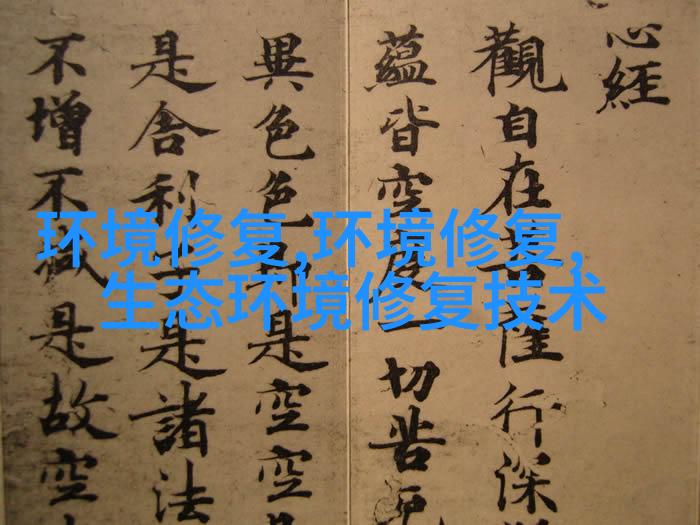 心經
觀自在菩薩行深
蘊皆空度一切苦厄
異色色即是空空
是舍利子是諸法
不增不減是故空
环境修复,环境修复,
生态环境修复技术